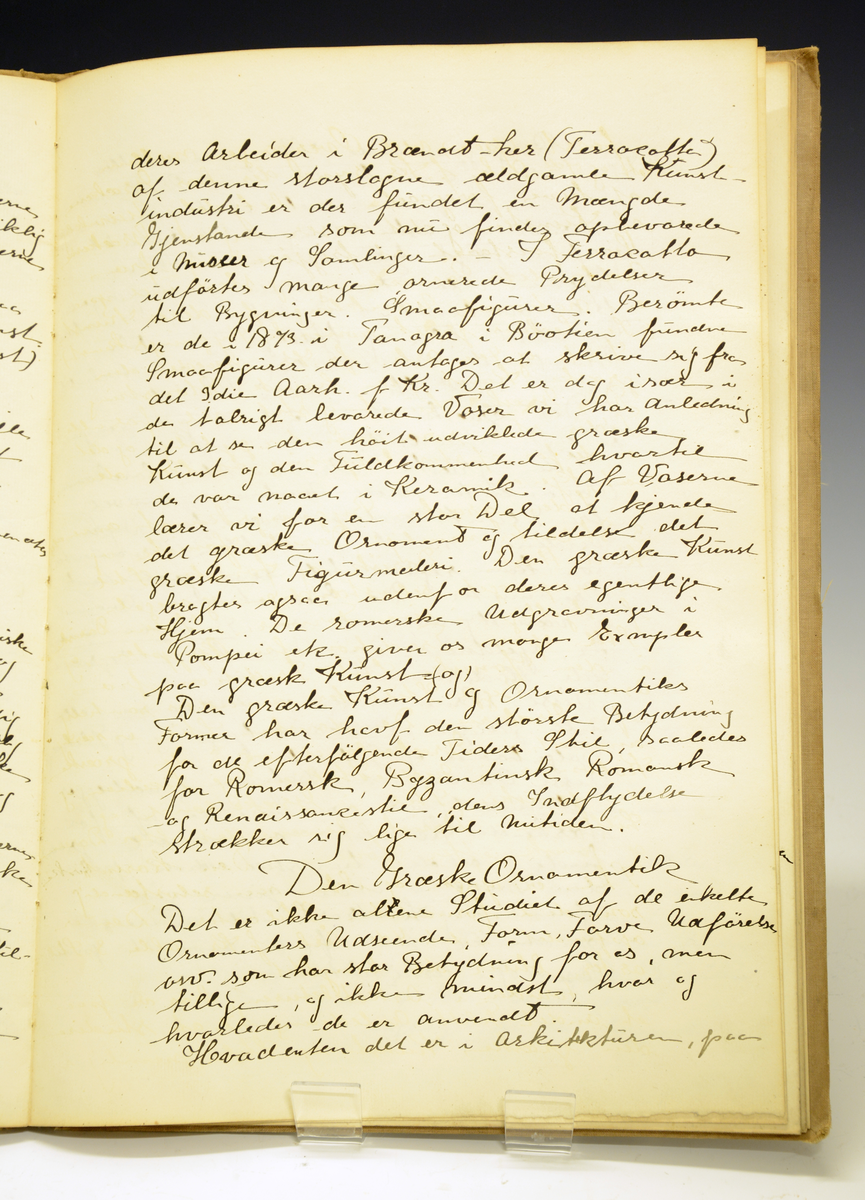 deres Arbeider i Brændt-ler (Terracotta)
af denne storslagne ældgamle Kunst-
industri er der fundet en Mængde
Gjenstande som nu findes opbevarede
i Museer og Samlinger. – I Terracotta
udførtes mange ornerede Prydelser
til Bygninger. Smaafigurer. Berømte
er de i 1873 i Tanagra i Böotien fundne
Smaafigurer der antages at skrive sig fra
det 3die Aarh. f Kr. Det er dog især i
de talrigt bevarede Vaser vi har Anledning
til at se den höit udviklede græske
Kunst og den Fuldkommenhed hvortil
de var naaet i Keramik. Af Vaserne
lærer vi for en stor Del at kjende
det græske Ornament og tildels det
græske Figurmaleri. Den græske Kunst
bragtes ogsaa udenfor deres egentlige
Hjem. De romerske Udgravninger i
Pompei etc. giver os mange Exempler
paa græsk Kunst (og)
Den græske Kunst og Ornamentiks
Former har havt den störste Betydning
for de efterfölgende Tiders Stil, saaledes
for Romersk, Byzantinsk Romansk
og Renaissancestil, dens Indflydelse
strækker sig lige til nutiden.
Den Græske Ornamentik
Det er ikke allene Studiet af de enkelte
Ornamenters Udseende, Form, Farve Udförelse
osv. som har stor Betydning for os, men
tillige, og ikke mindst, hvor og
hvorledes de er anvendt.
Hvadenten det er i Arkitekturen, paa